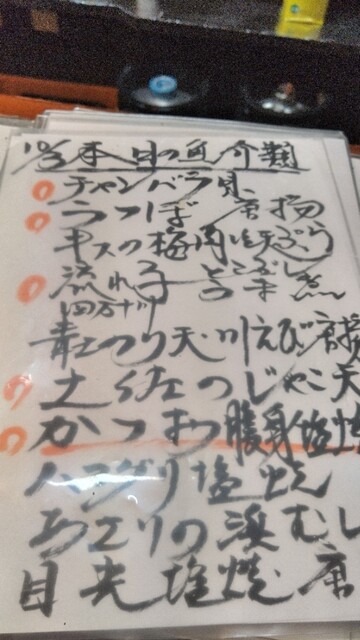 10/3 本日の魚介類
チャンバラ貝
うつぼ 唐揚
キスの梅肉 天ぷら
流れ子
四万十川
青さのり天 川えび 唐揚
土佐のじゃこ天
かつお腹身塩焼
ハランボ塩焼
あさりの浜むし
目光 塩焼 唐